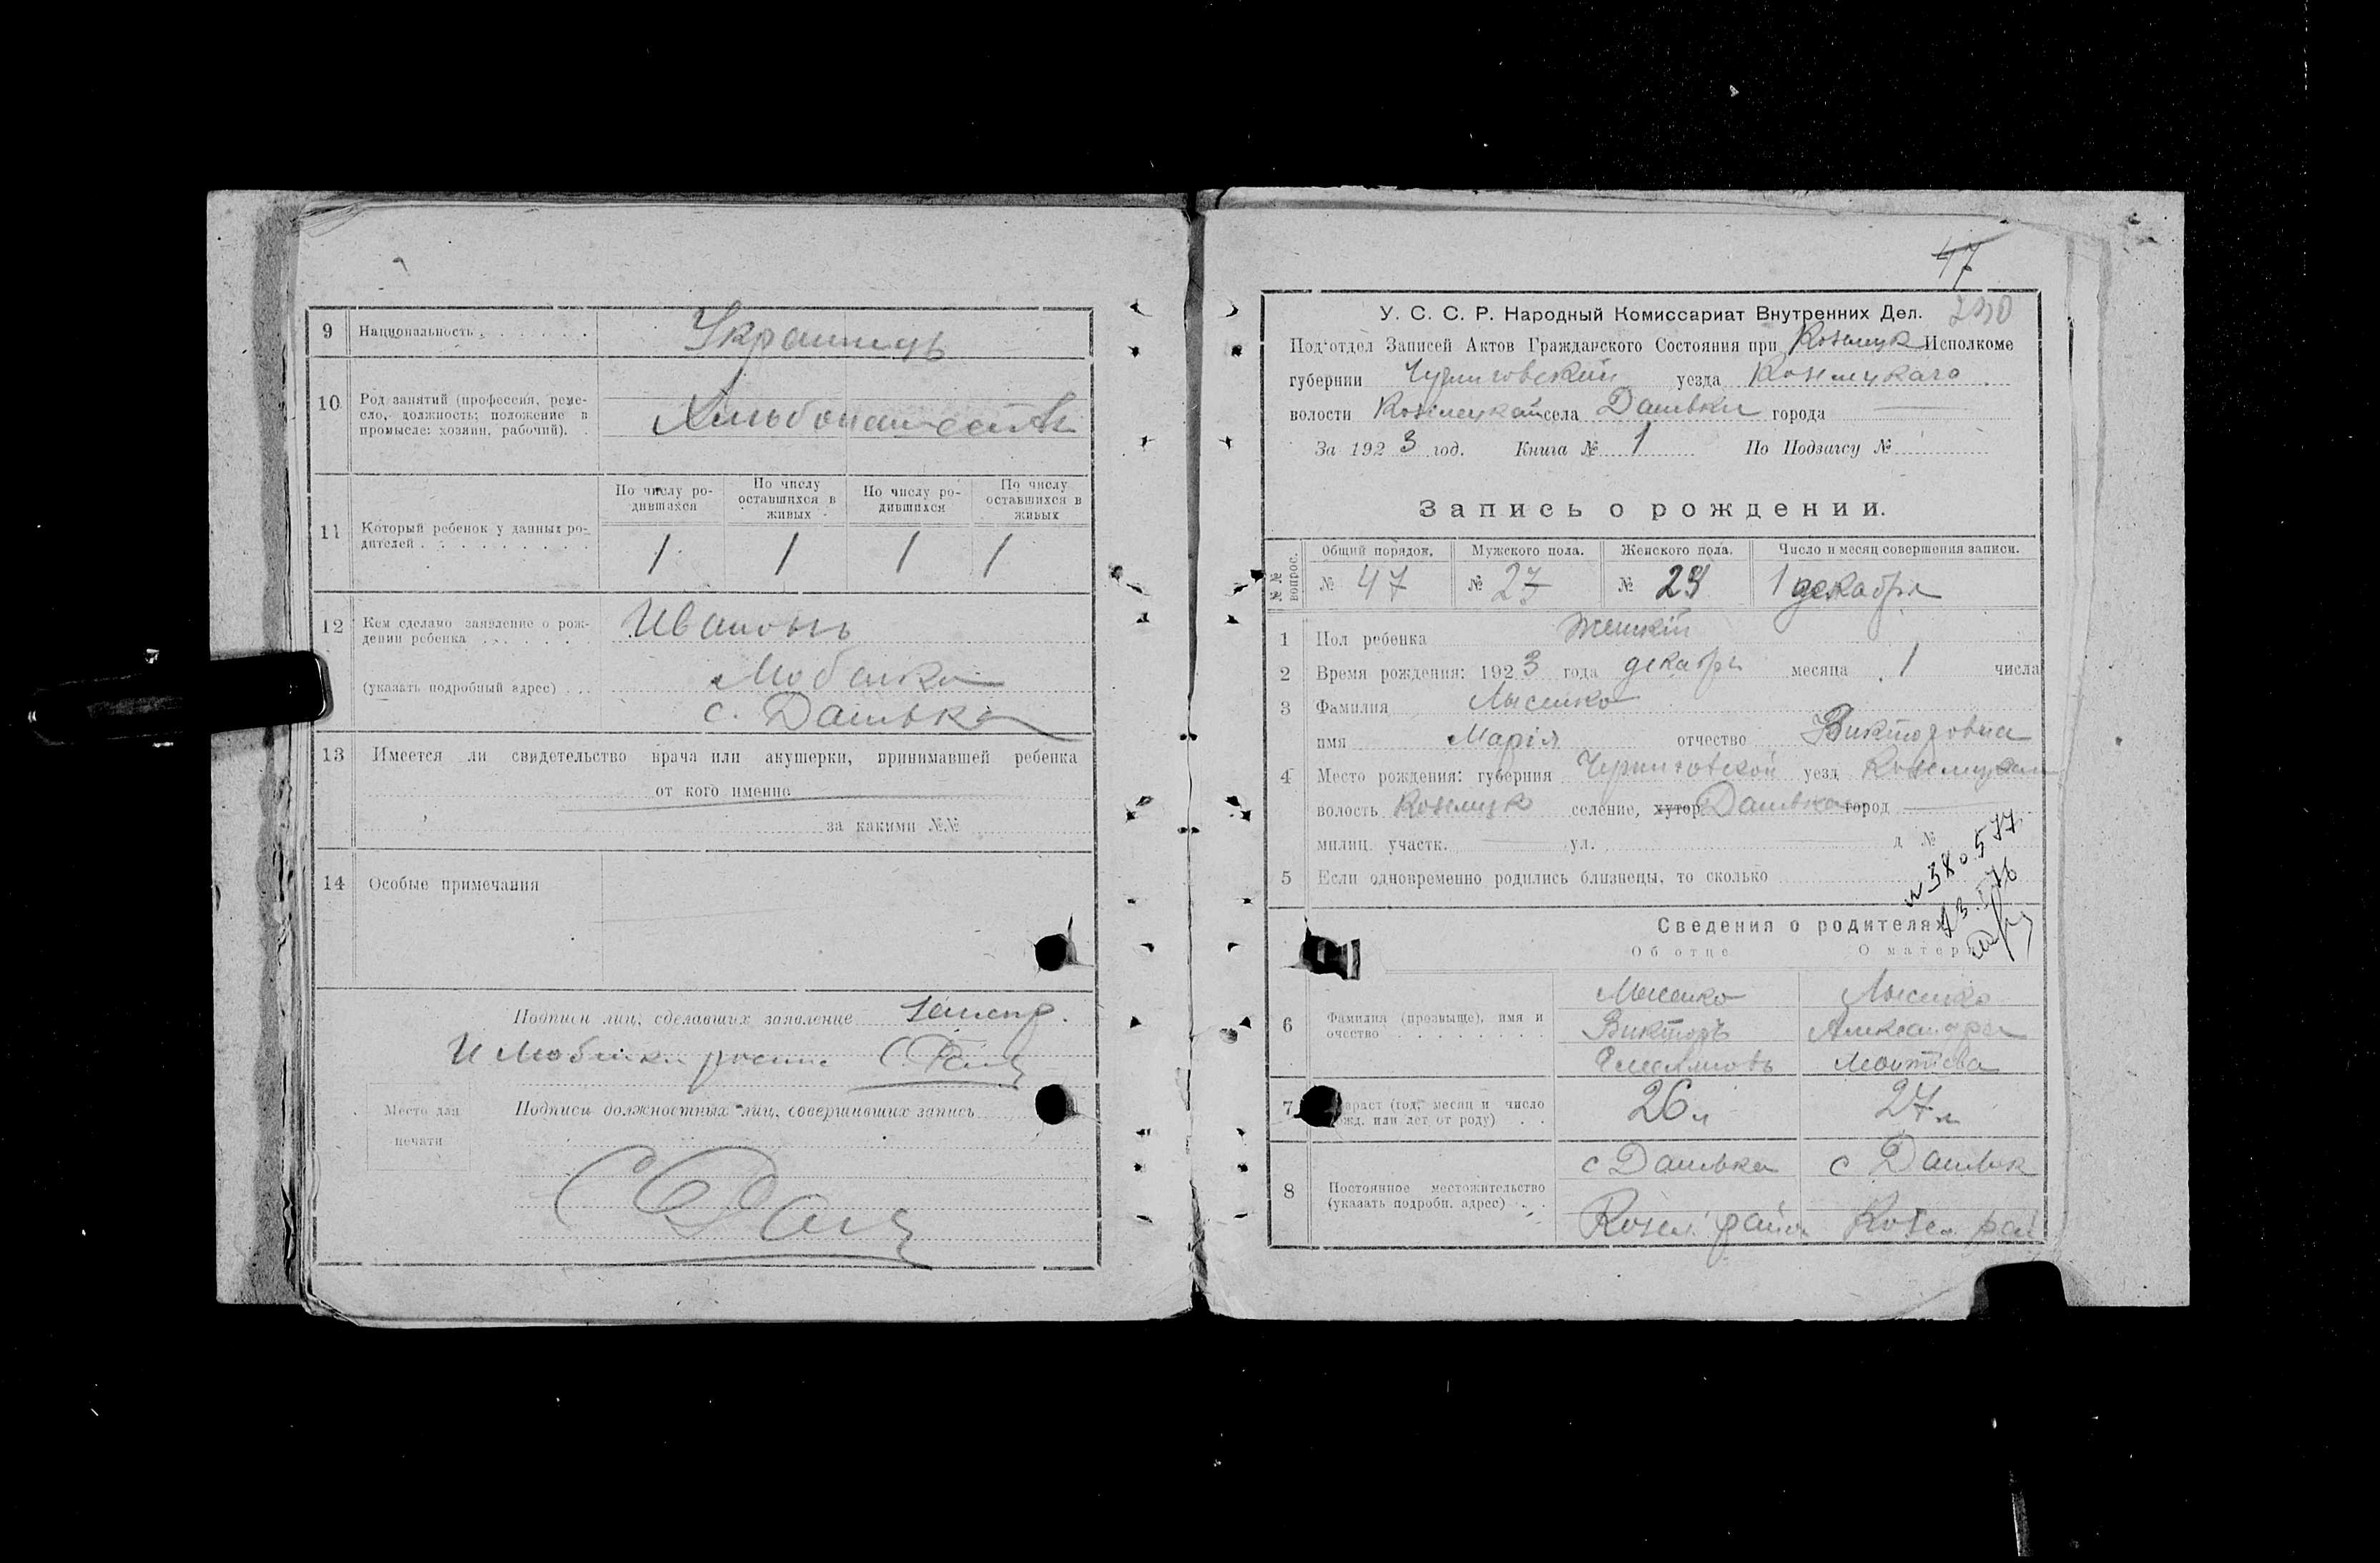 9 Национальность Украинецъ
10 Род занятий (профессия, реме-
сло, должность; положение в
промысле: хозяин, рабочий).
По числу ро-
дившихся
По числу
оставшихся в
живых
По числу ро-
дившихся
По числу
оставшихся в
живых
11 Который ребенок у данных ро-
дителей 1 1 1 1
12 Кем сделано заявление о рож-
дении ребенка
(указать подробный адрес)
с. ДанЬвка
13 Имеется ли свидетельство врача или акушерки, принимавшей ребенка
от кого именно
за какими №№
14 Особые примечания
Подписи лиц, сделавших заявление
Место для
печати
Подписи должностных лиц, совершивших запись
47
У. С. С. Р. Народный Комиссариат Внутренних Дел. 240
Под'отдел Записей Актов Гражданского Состояния при Козелецк Исполкоме
губернии Черниговской уезда Козелецкаго
волости Козелецкой села Данѣвки города
За 1923 год. Книга № 1 По Подзагсу №
Запись о рождении.
№ № вопрос.
Общий порядок. Мужского пола. Женского пола. Число и месяц совершения записи.
№ 47 № 27 № 24 1 декабря
1 Пол ребенка Женскій
2 Время рождения: 1923 года декабря месяца 1 числа
3 Фамилия Лысенко
имя Марія отчество Викторовна
4 Место рождения: губерния Черниговской уезд Козелецкаго
волость Козелецк селение, хутор Данѣвка город
милиц. участк. ул. д №
5 Если одновременно родились близнецы, то сколько
Сведения о родителях
Об отце О матери
6 Фамилия (прозвыще), имя и
очество
Лысенко Лысенко
Викторъ Александра
7 Возраст (год, месяц и число
рожд. или лет от роду) 26 л 27 л
8 Постоянное местожительство
(указать подробн. адрес)
с Данѣвка с Данѣвк
Козел. район Козел. рай